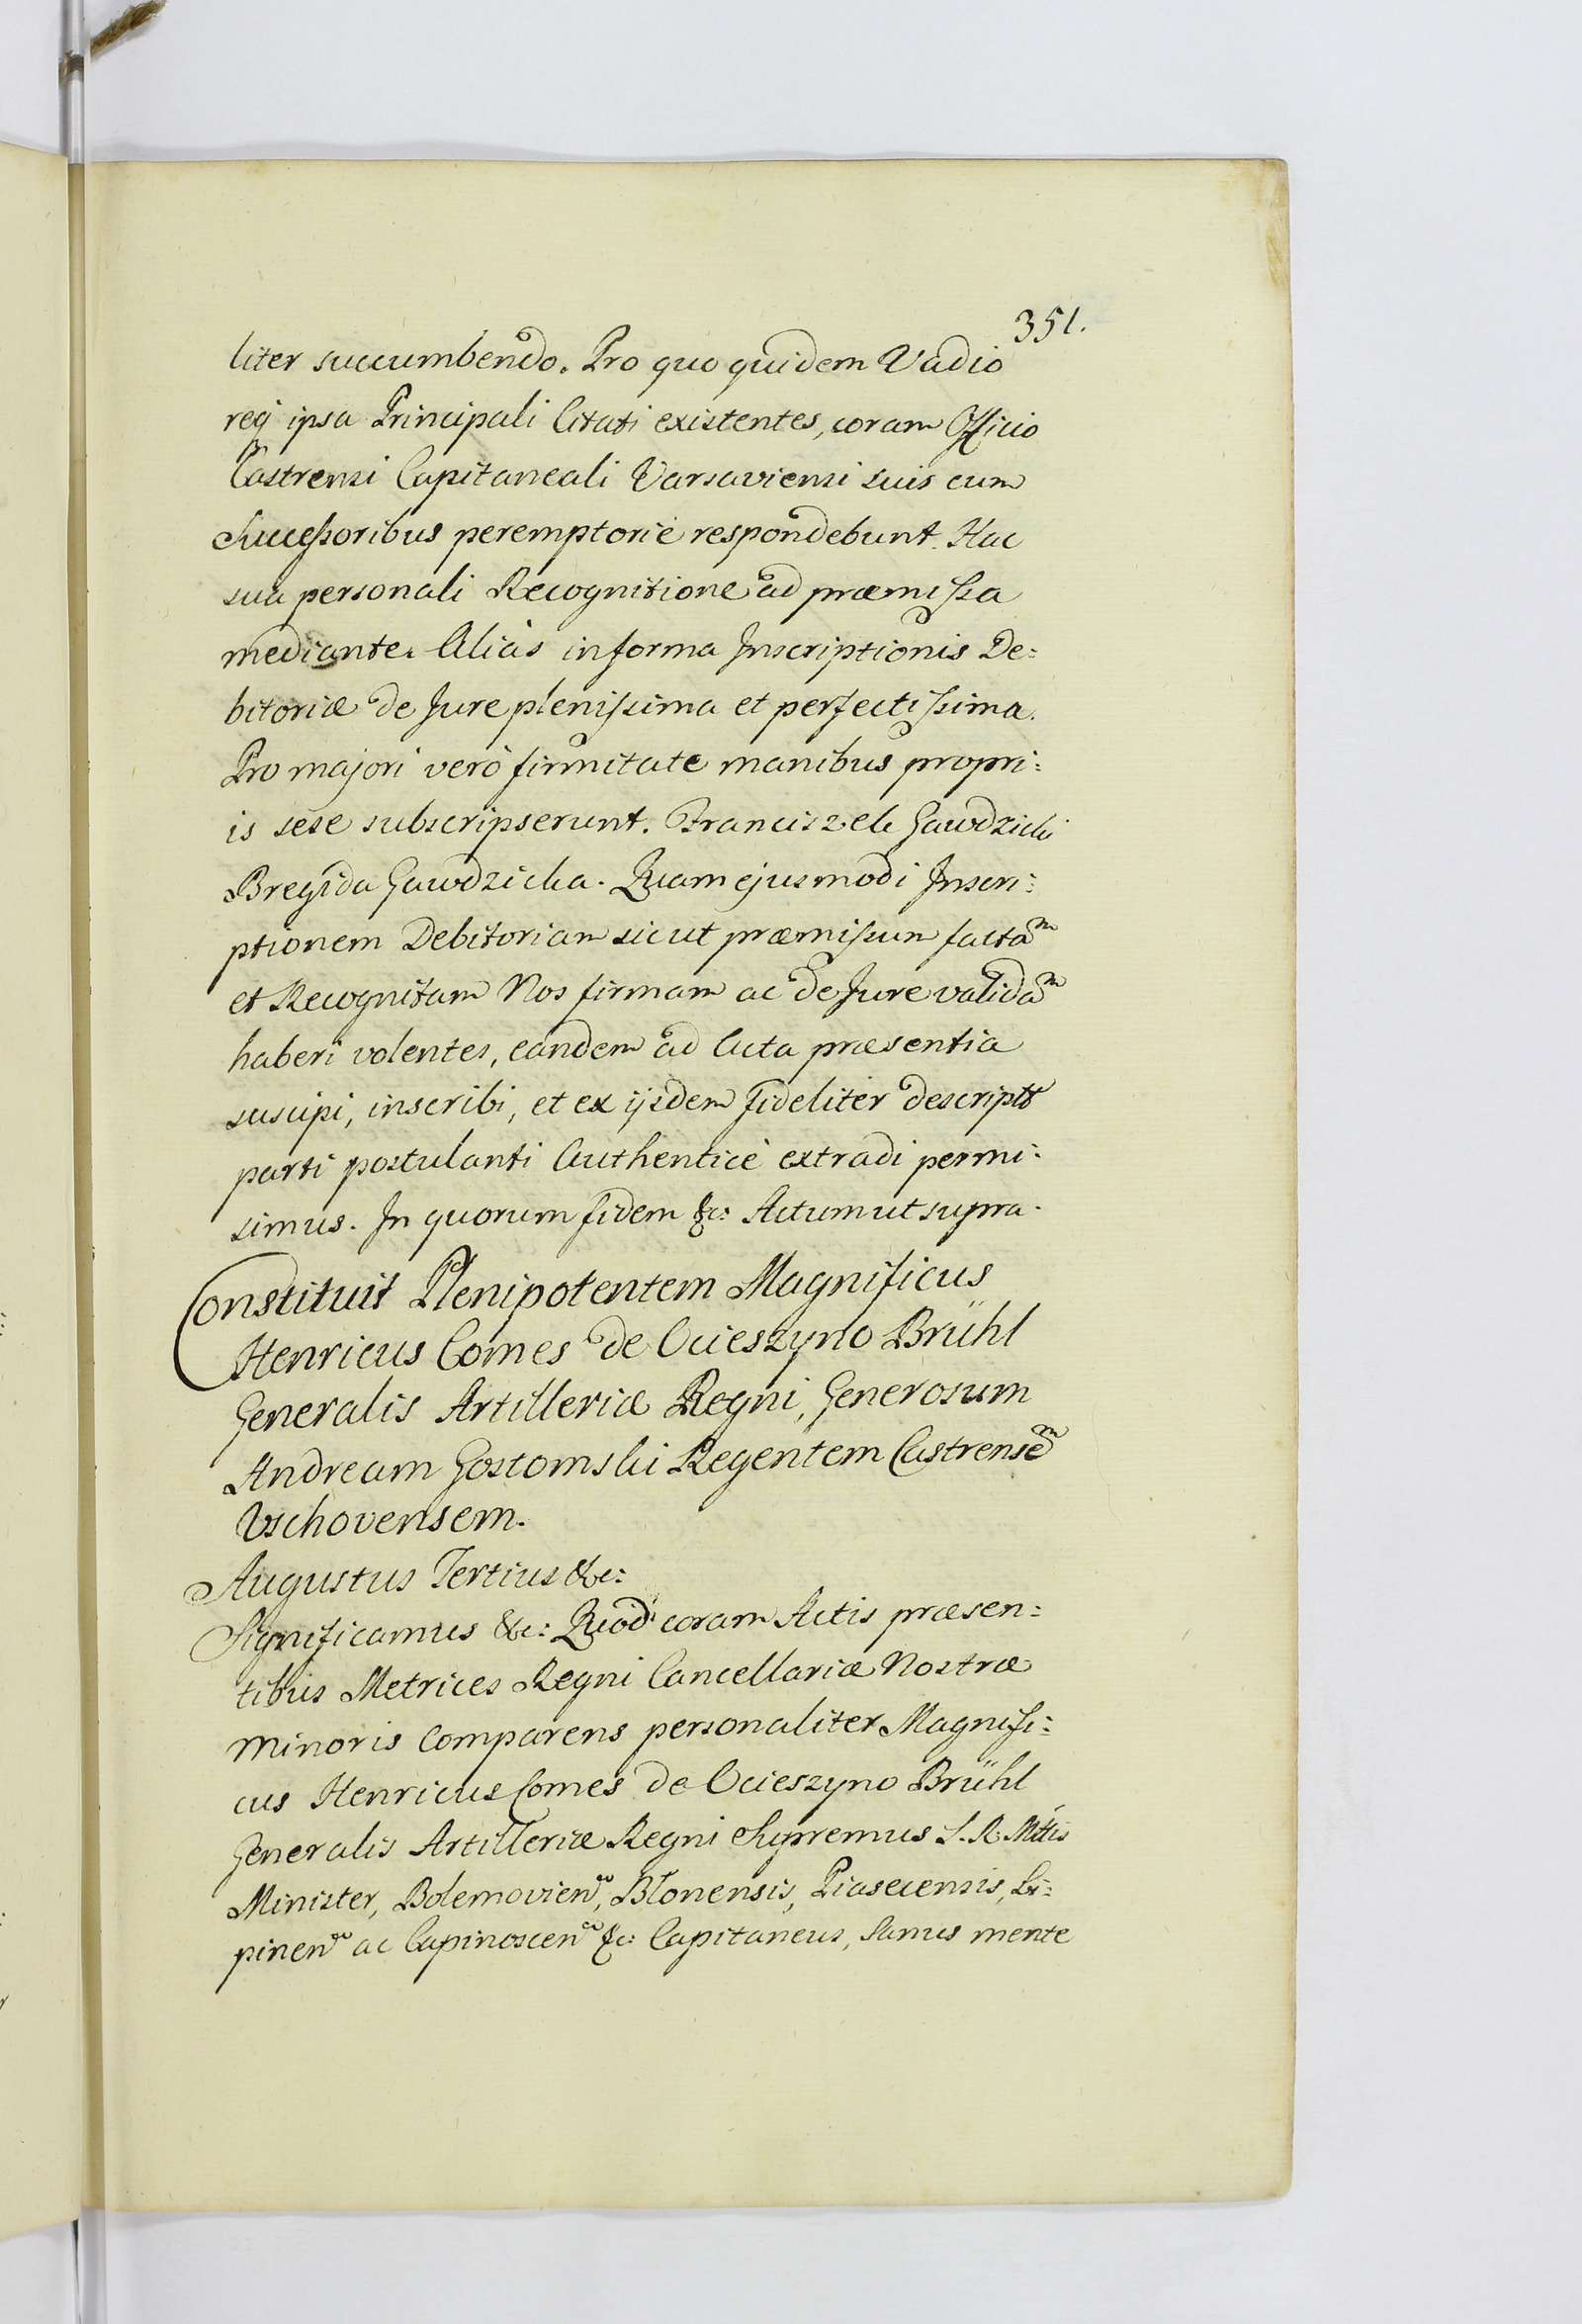 351.
liter succumbendo. Pro quo quidem Vadio
req ipsa Principali Citati existentes, coram Officio
Castrensi Capitaneali Varsaviensi suis cum
Successoribus peremptorie respondebunt. Hac
sua personali Recognitione ad præmissa
mediante. Aliàs in forma Inscriptionis De:
bitoriæ de Jure plenissima et perfectissima.
Pro majori verò firmitate manibus propri:
is sese subscripserunt. Franciszek Gawdzicki
Bregida Gawdzicka. Quam ejusmodi Inscri:
ptionem Debitoriam sicut præmissum factam
et Recognitam Nos firmam ac de Jure validam
haberi volentes, eandem ad Acta præsentia
suscipi, inscribi, et ex ijsdem fideliter descriptt
parti postulanti Authenticè extradi permi:
simus. In quorum fidem &c: Actum ut supra.
Constituit Plenipotentem Magnificus
Henricus Comes de Ocieszyno Brühl
Generalis Artilleriæ Regni, Generosum
Andream Gostomski Regentem Castrensem
Vschovensem.
Augustus Tertius &c:
Significamus &c: Quod coram Actis præsen:
tibus Metrices Regni Cancellariæ Nostræ
Minoris Comparens personaliter Magnifi:
cus Henricus Comes de Ocieszyno Brühl
Generalis Artilleriæ Regni Supremus S. R. Mttis
Minister, Bolemovien, Blonensis, Piasecensis, Li:
pinen ac Capinoscen &c: Capitaneus, Sanus mente